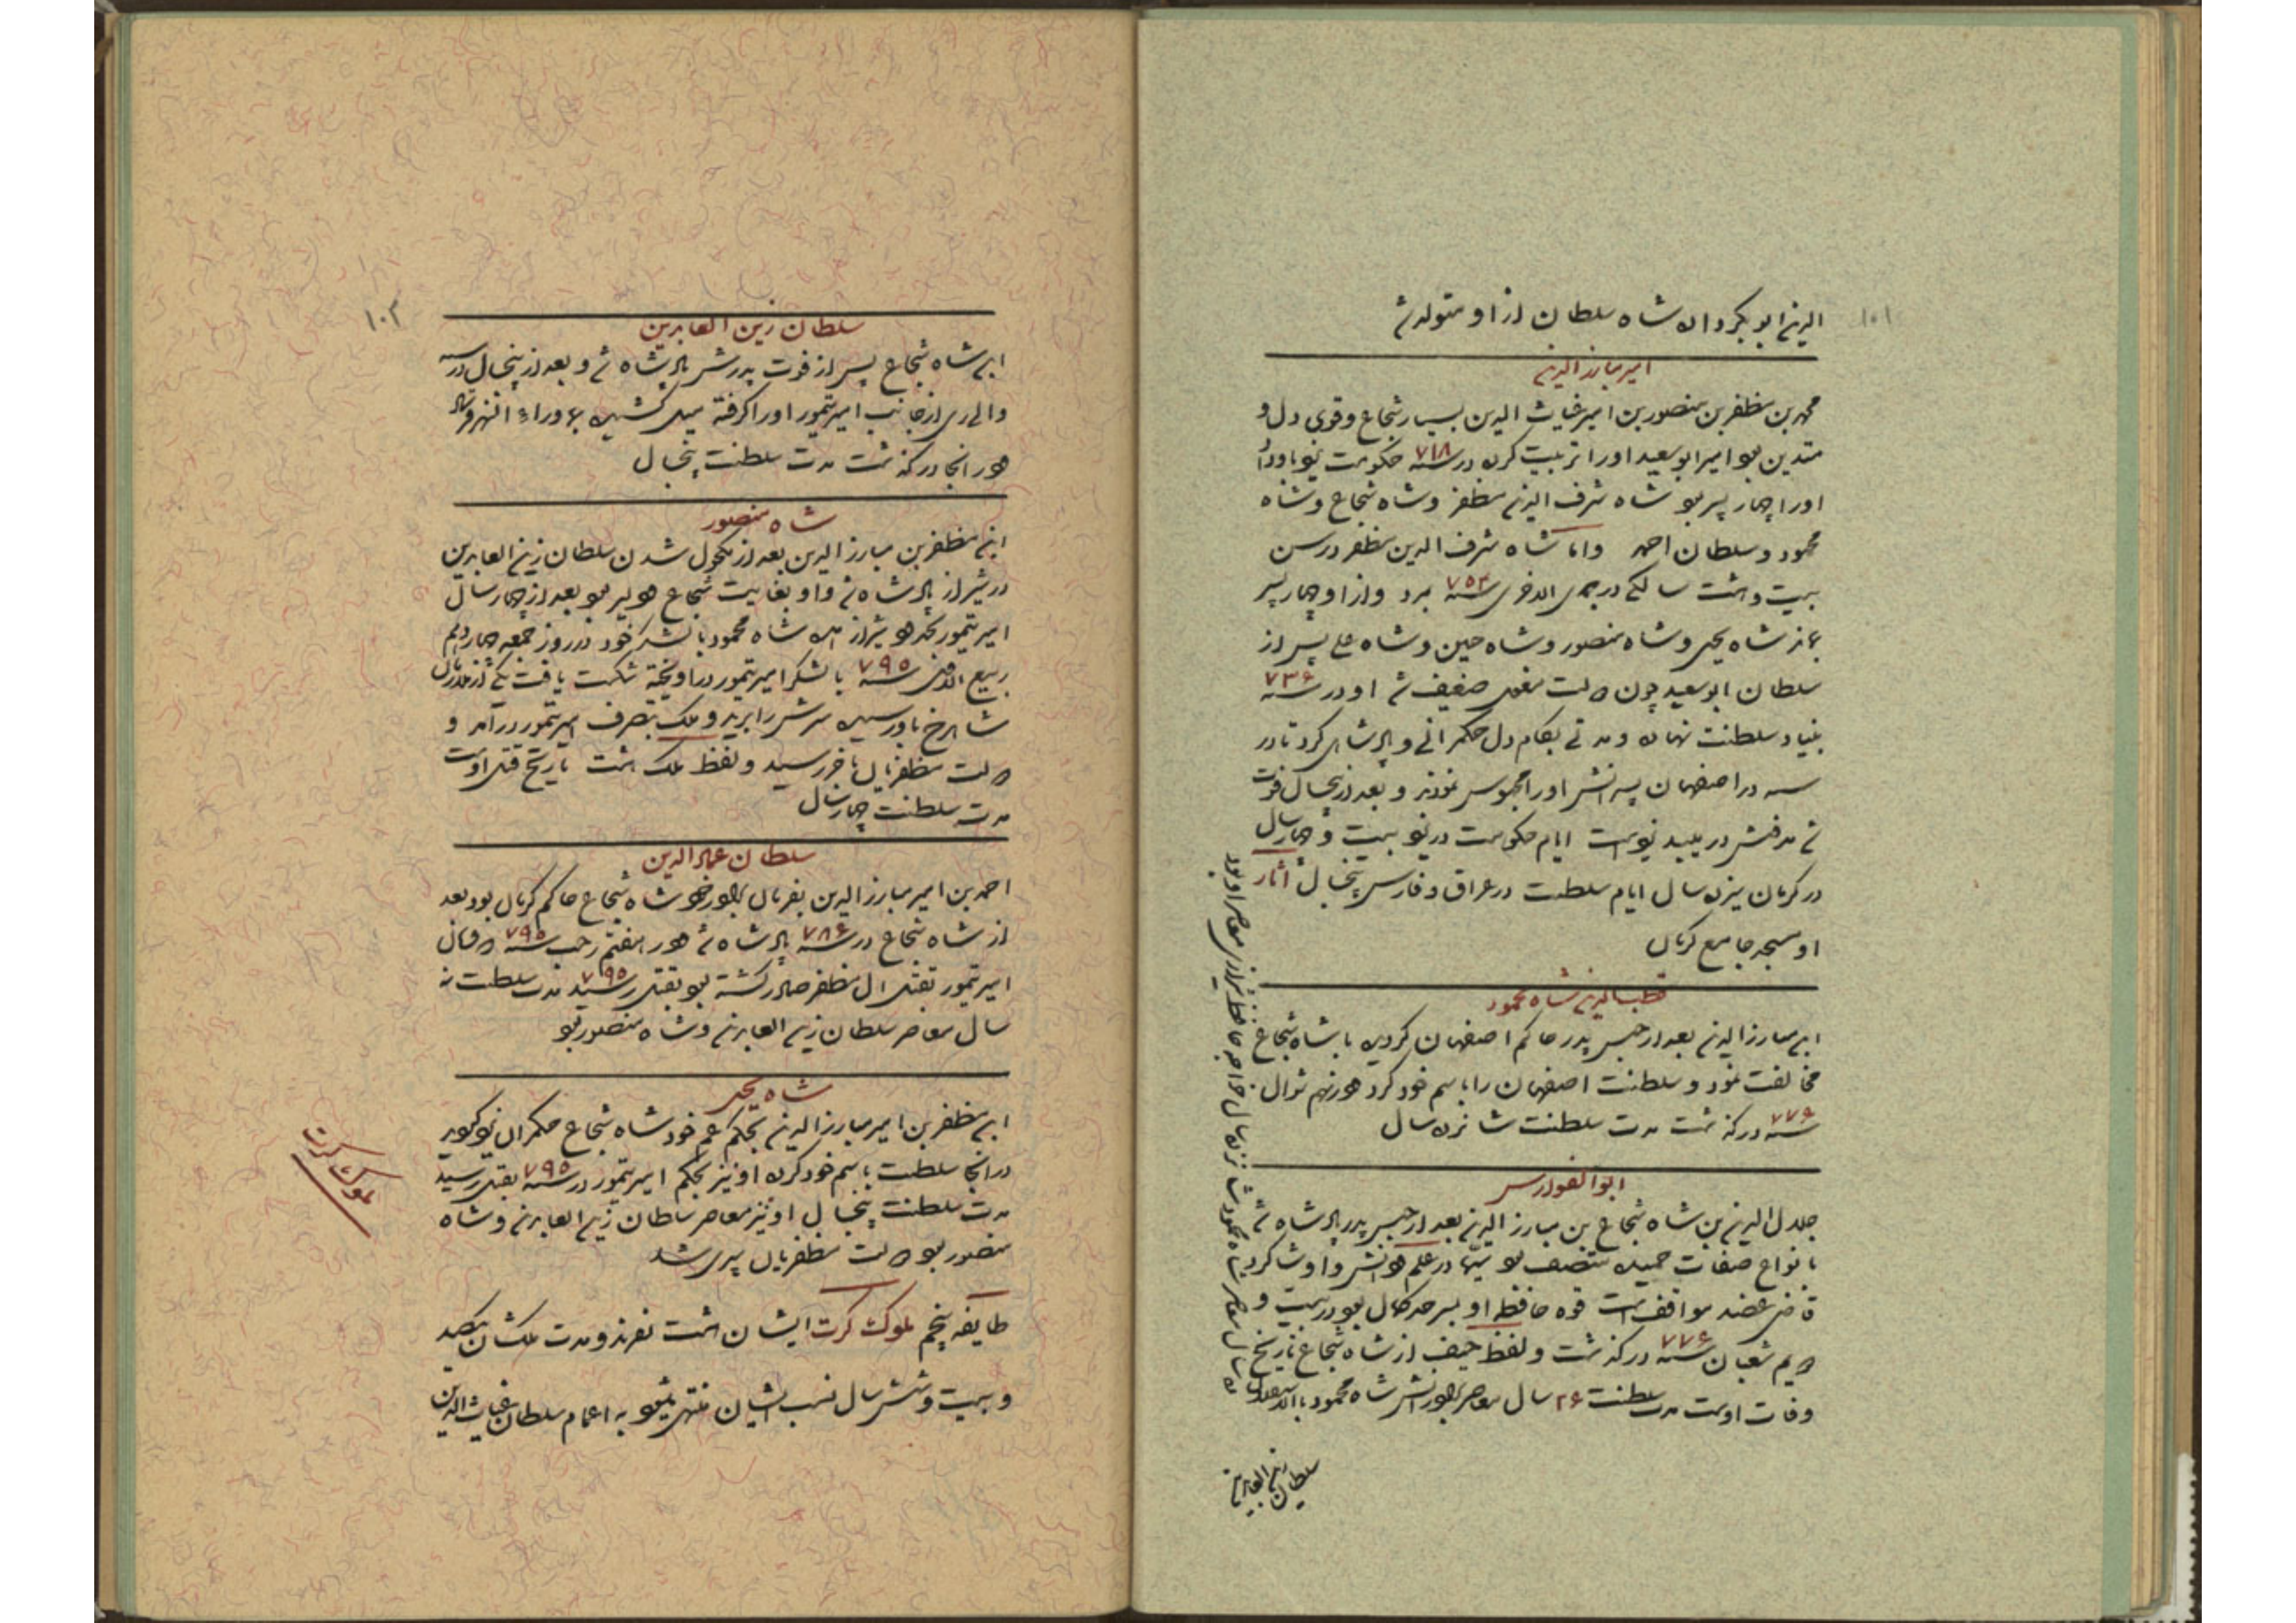 ۱۰۱
الدین ابوبکر و او شاه سلطان از او متولد شد
امیر مبارز الدین
محمد بن مظفر بن منصور بن امیر غیاث الدین بسیار شجاع و قوی دل و
متدین بود امیر ابوسعید او را تربیت کرده در سنه ۷۱۸ حکومت یزد باو داد
او را چهار پسر بود شاه شرف الدین مظفر و شاه شجاع و شاه
محمود و سلطان احمد و اما شاه شرف الدین مظفر در سن
بیست و هشت سالگی در جمادی الاخری سنه ۷۵۴ بمرد و از او چهار پسر
بماند شاه یحیی و شاه منصور و شاه حسین و شاه علی پس از
سلطان ابوسعید چون دولت مغول ضعیف شد او در سنه ۷۳۶
بنیاد سلطنت نهاده و مدتی بکام دل حکمرانی و پادشاهی کرد تا در
سنه در اصفهان پسرانش او را محبوس نمودند و بعد از پنجسال فوت
شد مدفنش در میبد یزد است ایام حکومت در یزد بیست و چهار سال
در کرمان سیزده سال ایام سلطنت در عراق و فارس پنجسال آثار
او مسجد جامع کرمان
قطب الدین شاه محمود
ابن مبارز الدین بعد از حبس پدر حاکم اصفهان گردیده با شاه شجاع
مخالفت نمود و سلطنت اصفهان را باسم خود کرد در نهم شوال
سنه ۷۷۶ درگذشت مدت سلطنت شانزده سال
ابو الفوارس
جلال الدین بن شاه شجاع بن مبارز الدین بعد از حبس پدر پادشاه شد
بانواع صفات حمیده متصف بود سیما در علم و دانش و او شاگرد
قاضی عضد مواقف است قوه حافظه او بسر حد کمال بود در بیست و
دویم شعبان سنه ۷۷۶ درگذشت و لفظ حیف از شاه شجاع تاریخ
وفات اوست مدت سلطنت ۲۶ سال معاصر برادرش شاه محمود
شاه محمود شانزده سال خواجه حافظ شیرازی معاصر او بود
سلطان زین العابدین
۱۰۲
سلطان زین العابدین
ابن شاه شجاع پس از فوت پدرش پادشاه شد و بعد از پنجسال در سنه
والی ری از جانب امیر تیمور او را گرفته میل کشیده بماوراء النهر فرستاد
و در انجا درگذشت مدت سلطنت پنجسال
شاه منصور
ابن مظفر بن مبارز الدین بعد از مکحول شدن سلطان زین العابدین
در شیراز پادشاه شد و او بغایت شجاع و دلیر بود بعد از چهار سال
امیر تیمور بحدود شیراز آمده شاه محمود با لشکر خود در روز جمعه چهاردهم
ربیع الثانی سنه ۷۹۵ با لشکر امیر تیمور در اویخته شکست یافت یکی از ملازمان
شاهرخ باو رسیده سرش را برید و ملک بتصرف امیر تیمور درآمد و
دولت مظفریان باخر رسید و لفظ ملک هشت تاریخ قتل اوست
مدت سلطنت چهار سال
سلطان عماد الدین
احمد بن امیر مبارز الدین بفرمان برادر خود شاه شجاع حاکم کرمان بود بعد
از شاه شجاع در سنه ۷۸۶ پادشاه شد و در هفتم رجب سنه ۷۹۵ که فرمان
امیر تیمور بقتل ال مظفر صادر گشته بود بقتل رسید مدت سلطنت نه
سال معاصر سلطان زین العابدین و شاه منصور بود
شاه یحیی
ابن مظفر بن امیر مبارز الدین بحکم عم خود شاه شجاع حکمران یزد گردید
در انجا سلطنت باسم خود کرده او نیز بحکم امیر تیمور در سنه ۷۹۵ بقتل رسید
مدت سلطنت پنجسال او نیز معاصر سلطان زین العابدین و شاه
منصور بود دولت مظفریان سپری شد
ملوک کرت
طایفه پنجم ملوک کرت ایشان هشت نفرند و مدت ملکشان یکصد
و بیست و شش سال نسب ایشان منتهی میشود به اعمام سلطان غیاث الدین